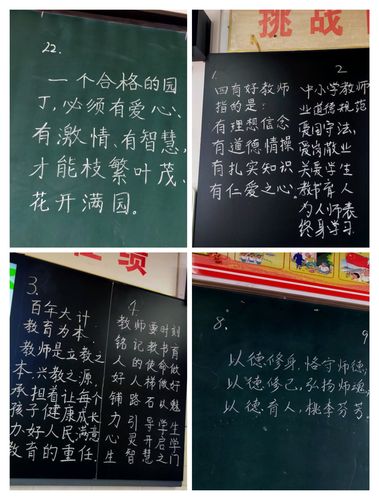 22.
一个合格的园
丁,必须有爱心、
有激情、有智慧,
才能枝繁叶茂、
花开满园。
挑战
1.
四有好教师
指的是:
有理想信念
有道德情操
有扎实知识
有仁爱之心。
2
中小学教师
业道德规范
爱国守法,
爱岗敬业
关爱学生
教书育人
为人师表
终身学习.
绩
3、
百年大计
教育为本
教师是立教之
本、兴教之源,
承担着让每个
孩子健康成长
办好人民满意
教育的重任
4.
教师要时刻
铭记教书育
人的使命做
好人梯做好
铺路石以魅
力引导学生
心灵开启学
生智慧之门
8、
9
以德修身,恪守师德;
以德修己,弘扬师魂;
以德育人,桃李芬芳。